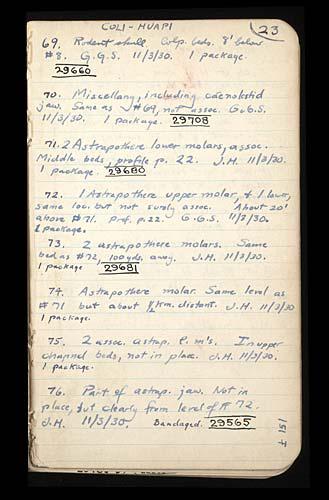 COLI-HUAPI
23
69. Rodent skull. Colp. beds. 8' below
#8. G.G.S. 11/3/30. 1 package.
29660
70. Miscellany, including caenolestid
jaw. Same as #69, not assoc. G.G.S.
11/3/30. 1 package. 29708
71. 2 Astrapothere lower molars, assoc.
Middle beds, profile p. 22. J.H. 11/3/30.
1 package. 29680
72. 1 Astrapothere upper molar, & 1 lower,
same loc. but not surely assoc. About 20'
above #71. Prof. p. 22. G.G.S. 11/3/30.
2 package.
73. 2 astrapothere molars. Same
bed as #72, 100 yds. away. J.H. 11/3/30.
1 package 29681
74. Astrapothere molar. Same level as
#71 but about ½ km. distant. J.H. 11/3/30
1 package.
75. 2 assoc. astrap. P. m's. In upper
channel beds, not in place. J.H. 11/3/30.
1 package.
76. Part of astrap. jaw. Not in
place, but clearly from level of # 72.
J.H. 11/3/30. Bandaged. 29565